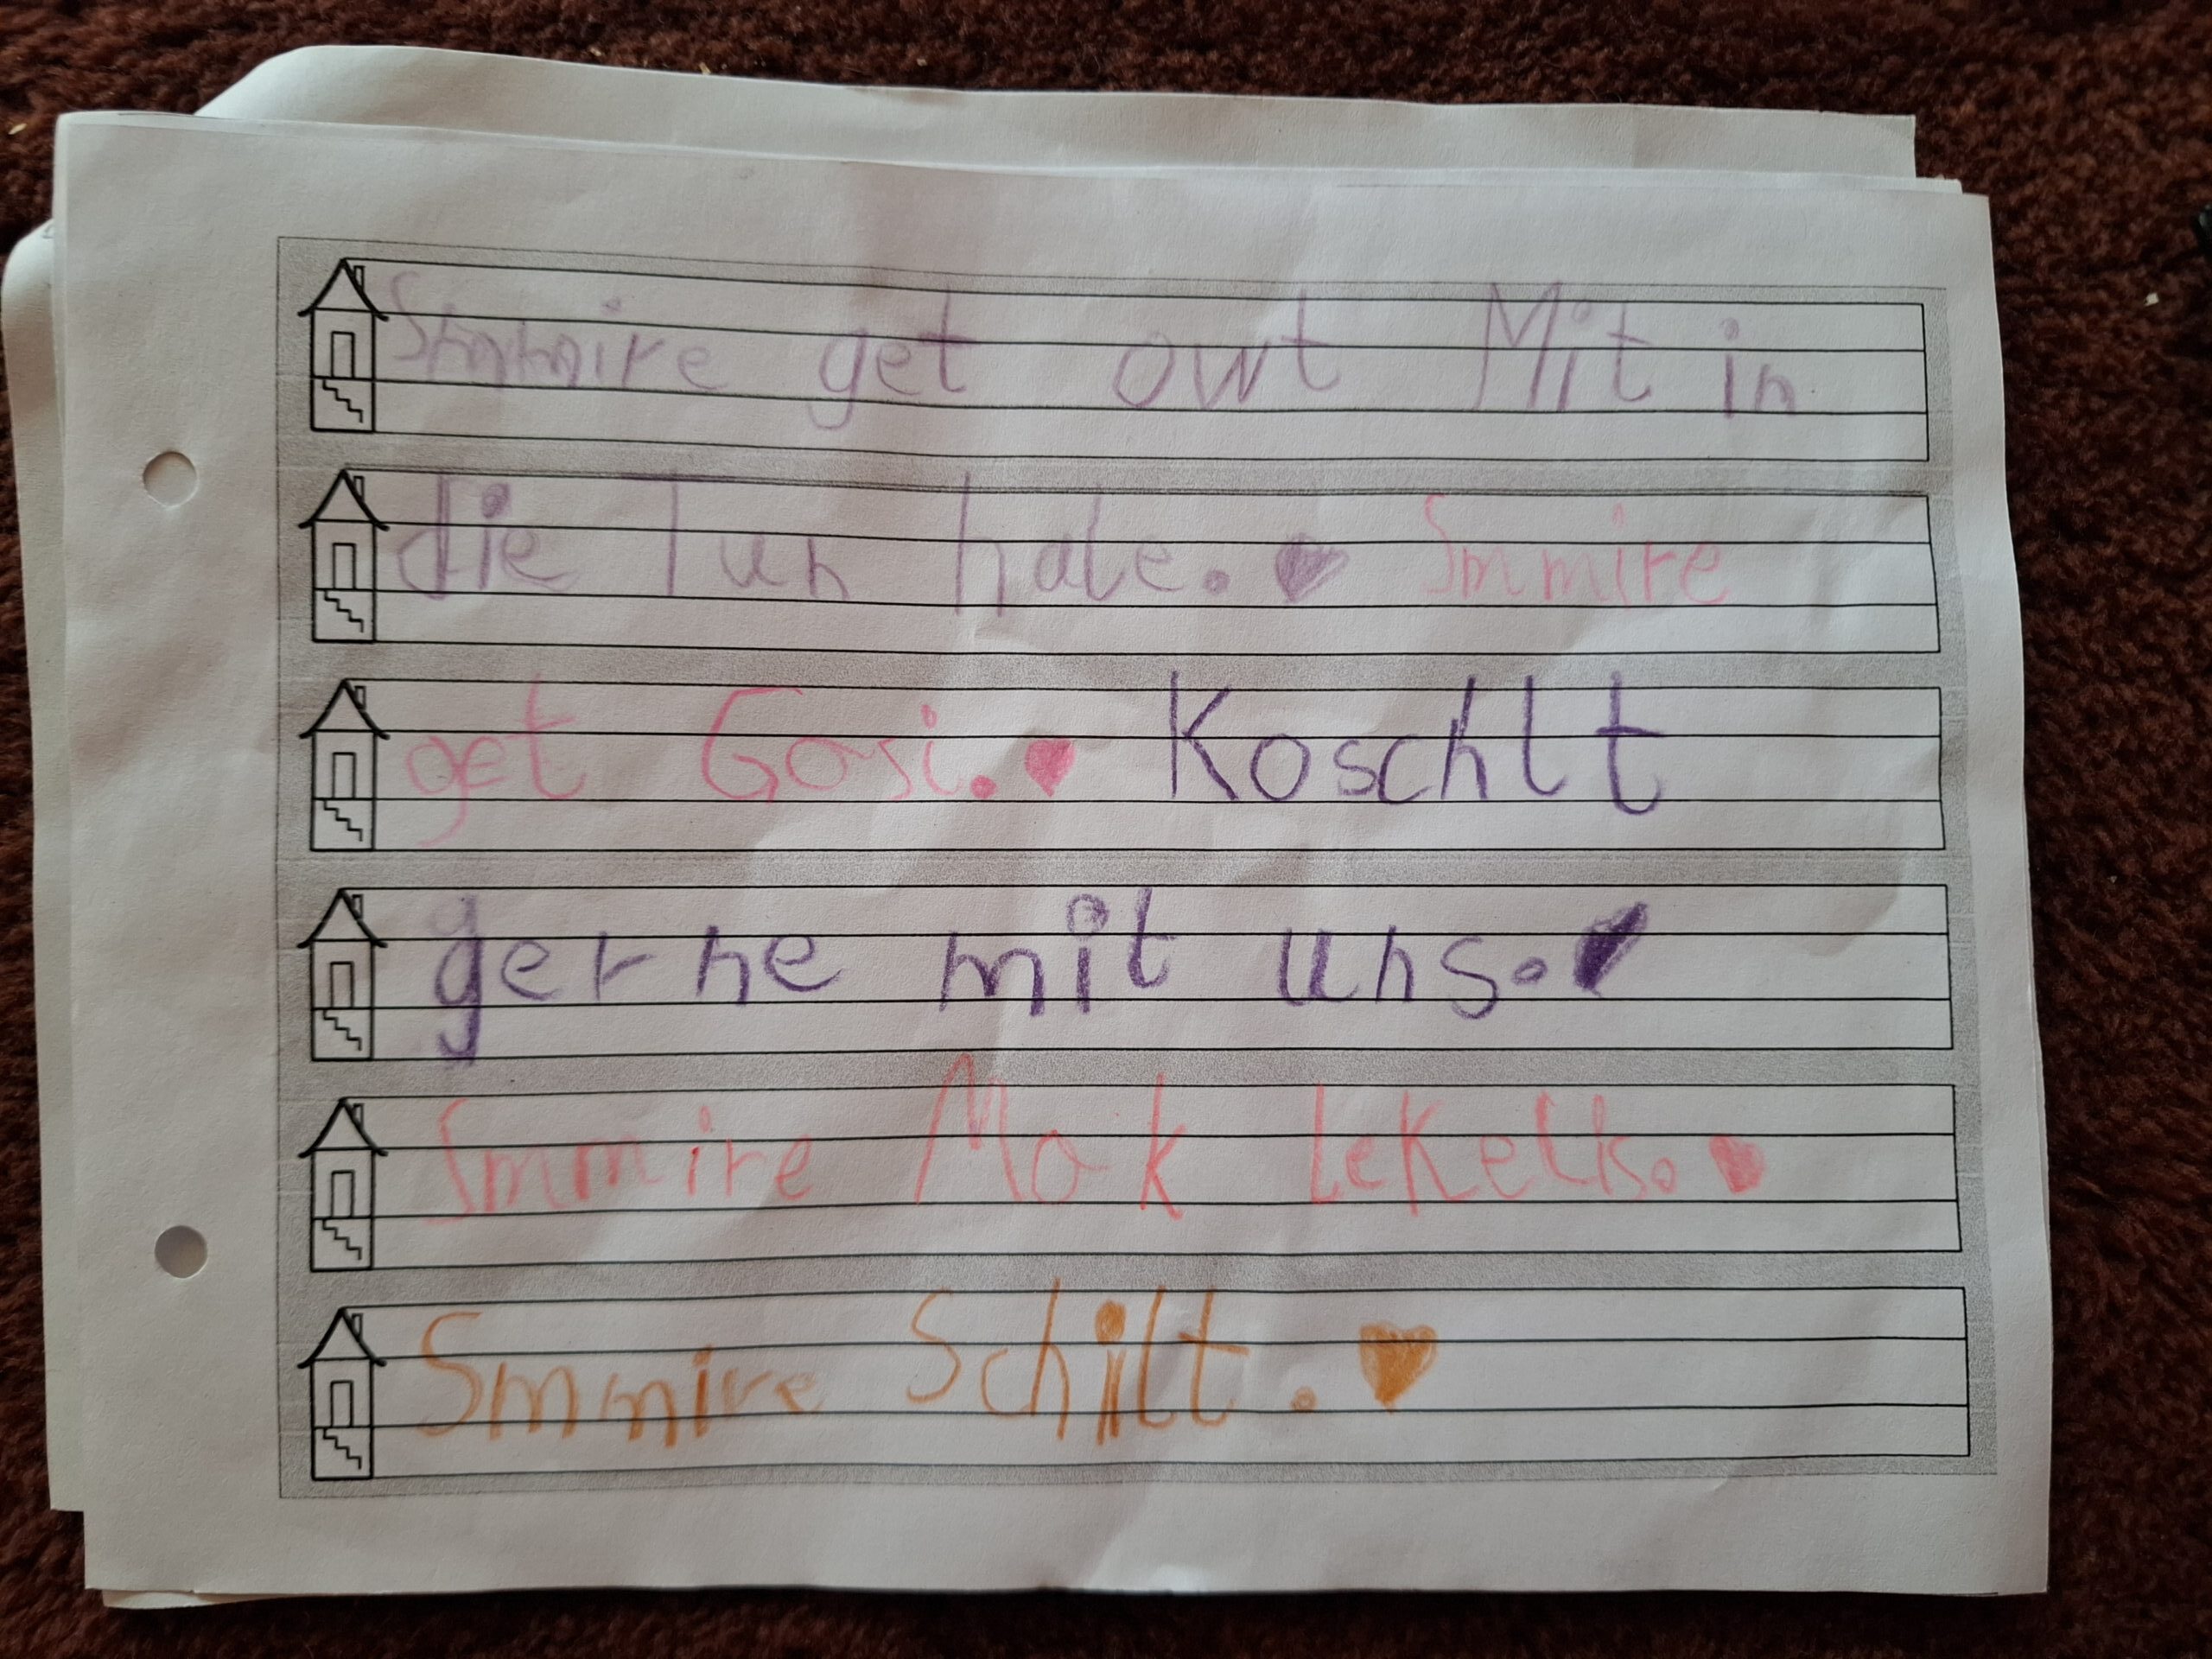 Smmire get owt Mit in
die Tun hale. Smmire
get Gasi. Koschlt
gerne mit uns.
Smmire Mak lekells.
Smmire Schilt.